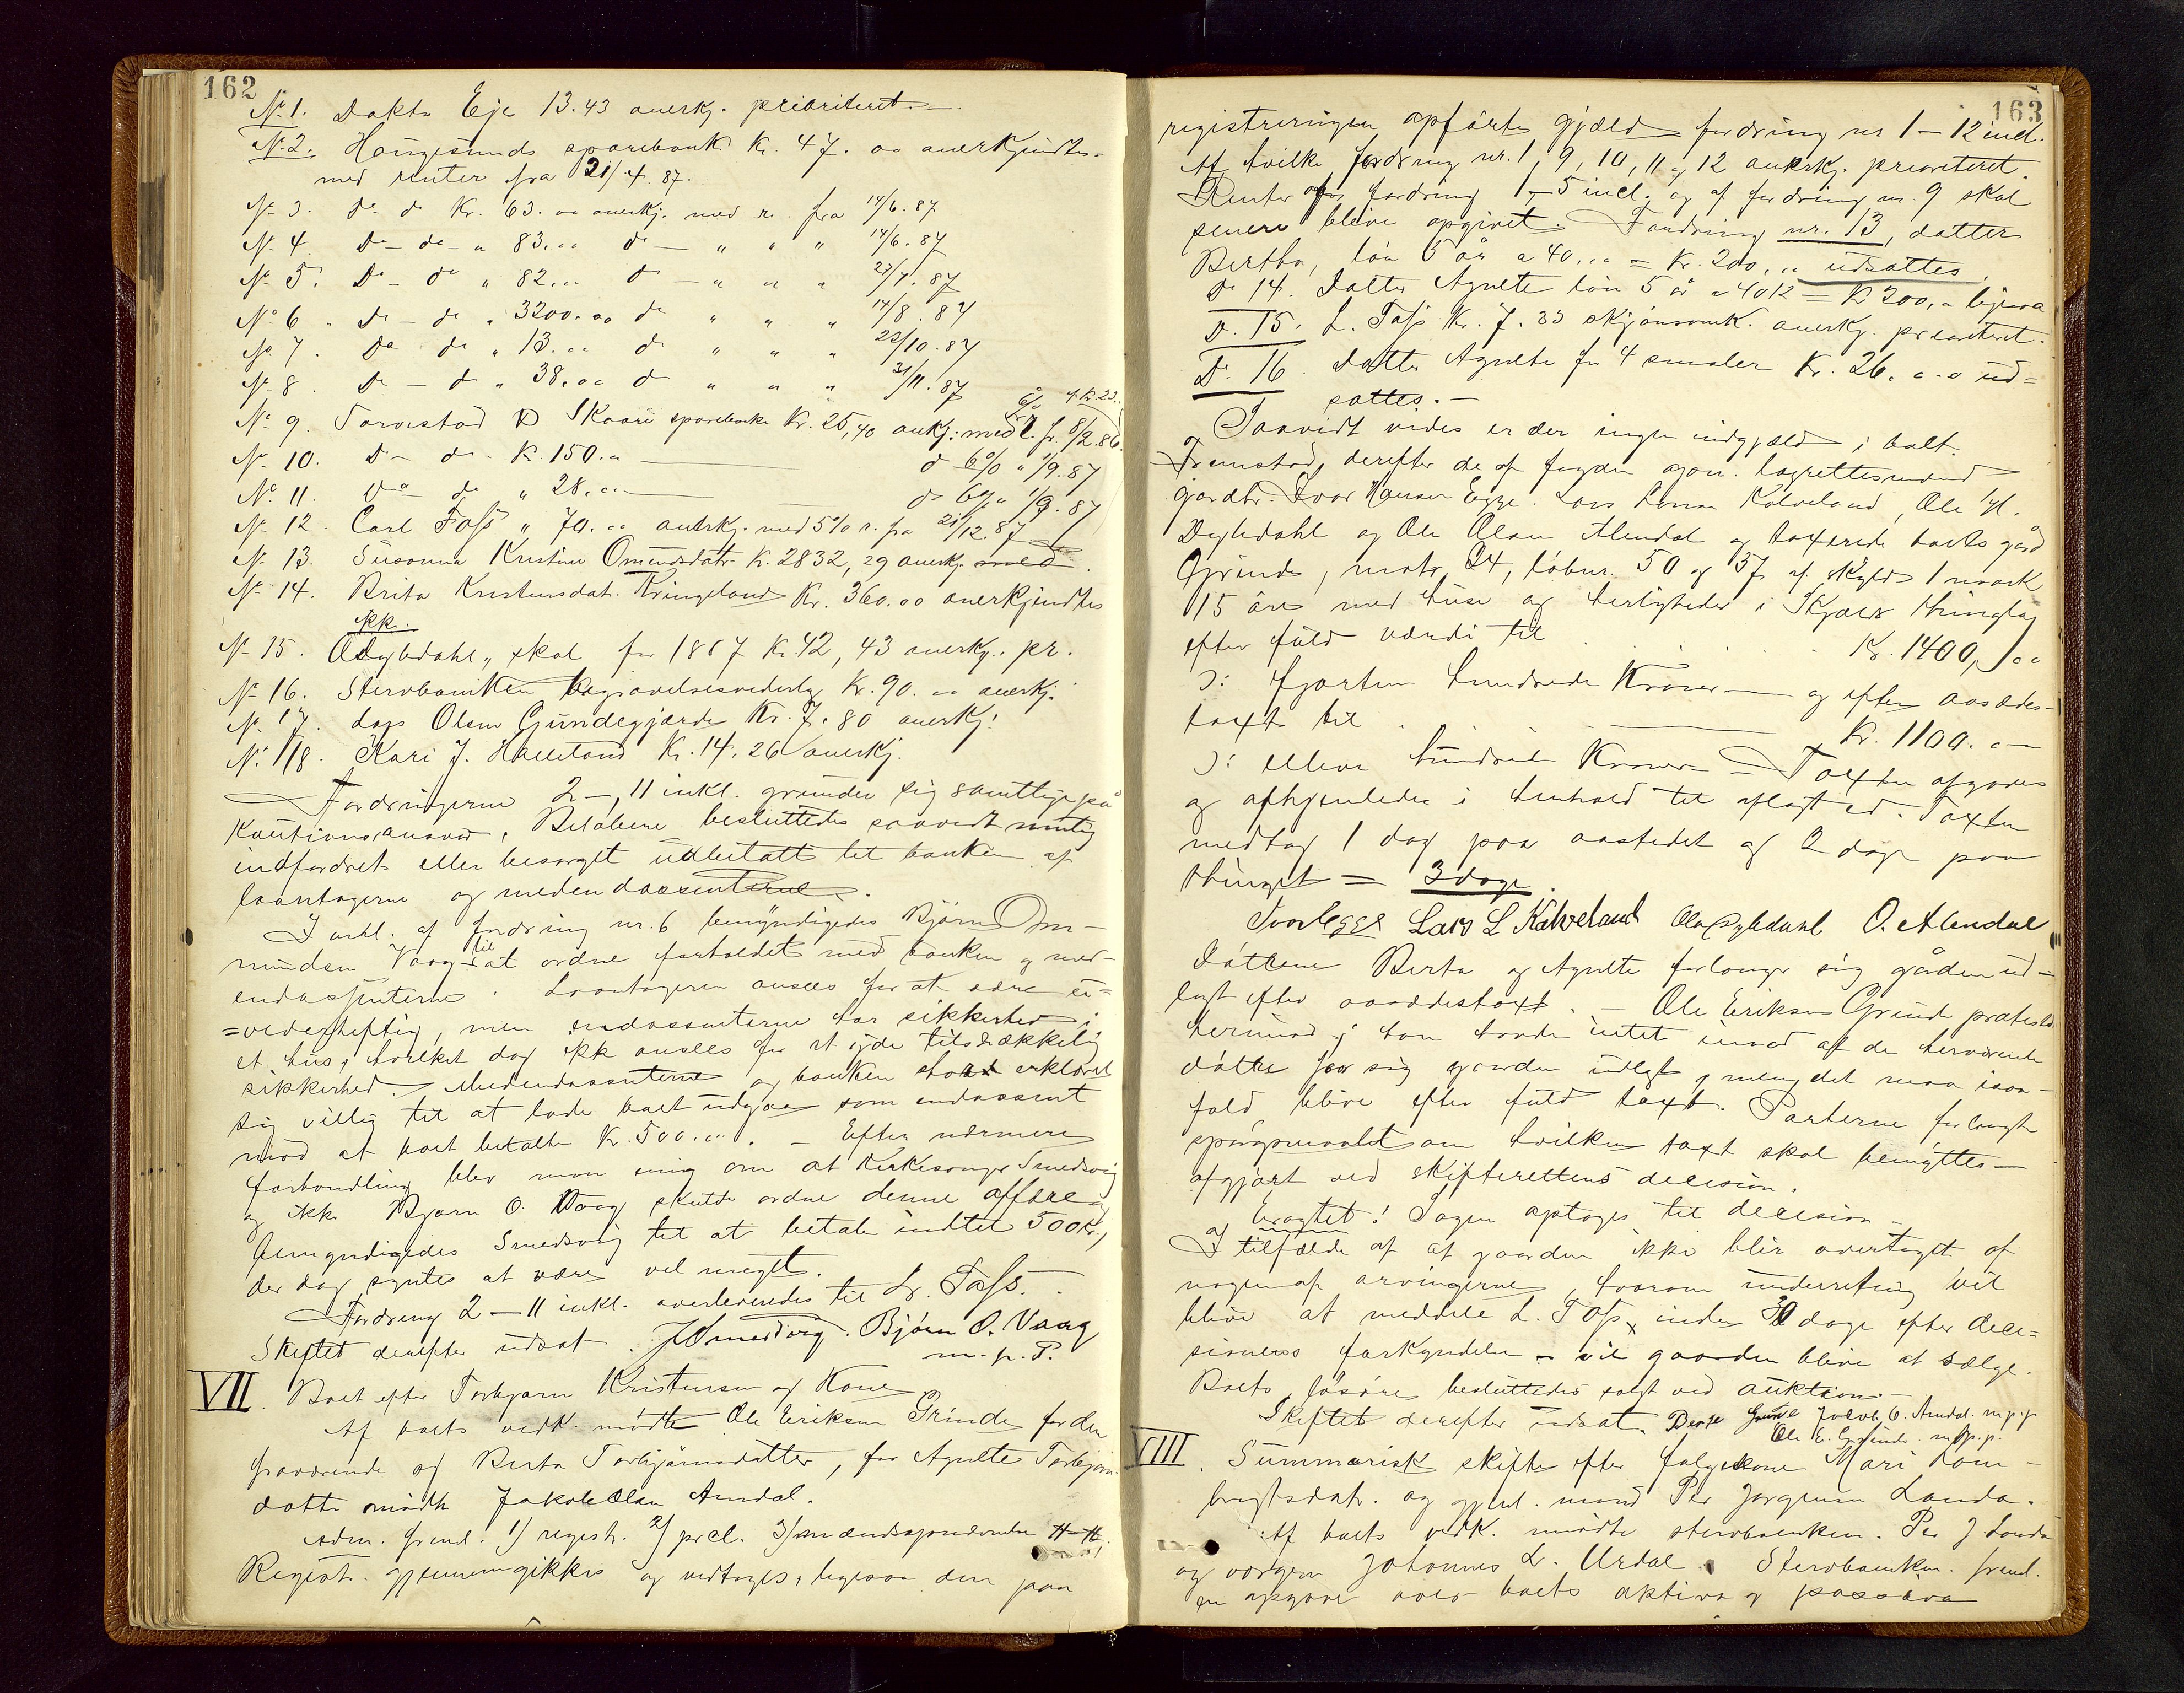 162
No 1. Doktr Eje 13.43 anerkj. prioriteret.
No 2. Haugesunds sparebank Kr. 47.00 anerkjendtes
med renter fra 21/4. 87.
No 3. Do do Kr. 63.00 anerkj. med r. fra 14/6. 87
No 4. Do - do - " 83.00 do - " " " 14/6. 87
No 5. Do - do " 82.00 do - " " " 27/7. 87
No 6. Do - do " 3200.00 do " " " 14/8. 87
No 7. Do do " 13.00 do " " " 22/10. 87
No 8. Do - do " 38.00 do " " " 21/11. 87
No 9. Torvestad & Skaare sparebank Kr. 25,40 ankj: med r. fr. 8/2. 86.
No 10. Do - do - Kr. 150.00 do 6% " 1/9. 87
No 11. Do do " 28.00 do 6% " 1/9. 87
No 12. Carl Fass " 70.00 anerkj. med 5% r. fra 21/12. 87
No 13. Susanna Kristine Omundsdatr Kr. 2832,29 anerkj. med
No 14. Brita Kristensdat. Kringeland Kr. 360.00 anerkjendtes
ikke.
No 15. O Dybdahl, skat for 1887 Kr. 42,43 anerkj. pr.
No 16. Stervboenken begravelsesvederlag Kr. 90.00 anerkj.
No 17. Lars Olsen Gundegjærde Kr. 7.80 anerkj.
No 18. Kari J. Halleland Kr. 14.26 anerkj.
Fordringerne 2-11 inkl. grunder sig samtlige på
Kautionsansvar. Beløbene besluttedes saavidt muligt
indfordret eller besørget udbetalt til banken af
laantagerne og medendossenterne.
I anl. af fordring nr. 6 bemyndigedes Bjørn Om-
mundsen Vaag til at ordne forholdet med banken og med-
endossenterne. Laantageren ansees for at være u-
=vederheftig, men endossenterne har sikkerhed i
et hus, hvilket dog ikke ansees for at yde tilstrækkelig
sikkerhed. Medendossenterne og banken skal have erklæret
sig villig til at lade boet udgaa som endossent
mod at boet betalte Kr. 500.00. - Efter nærmere
forhandling blev man enig om at Kirkesanger Smedsvig
og ikke Bjørn O. Vaag skulde ordne denne affære og
bemyndigedes Smedsvig til at betale indtil 500 Kr.,
der dog syntes at være vel meget.
Fordring 2-11 inkl. overleveredes til L. Fass.
Skiftet derefter udsat. J Smedsvig. Bjørn O. Vaag
m. p. P.
VII. Boet efter Torbjørn Kristensen og Kone
Af boets vedk. mødte Ole Eriksen Grinde for den
fraværende og Berta Torbjørnsdatter, for Agnete Torbjørns-
datter mødte Jakob Olsen Amdal.
Adm. freml. 1) registr. 2) procl. 3)
Registr. gjennemgikkes og vedtoges, ligesaa den paa
163
registreringen opførte gjæld fordring nr 1-12 incl.
Af hvilke fordring nr. 1, 9, 10, 11 og 12 anerkj. prioriteret.
Renter af fordring 1-5 incl. og af fordring nr. 9 skal
senere blive opgivet. Fordring nr. 13, datter
Bertha, løn 5 år a 40.00 = Kr. 200,00 udsattes.
Do 14. Datter Agnete løn 5 år a 40 Kr = Kr 200,00 ligesaa
Do 15. L. Fass Kr. 7.33 skjønsomk. anerkj. prioriteret.
Do 16. Datter Agnete for 4 smaler Kr. 26.00 ud=
sattes. -
Saavidt vides er der ingen indgjæld i boet.
Fremstod derefter de af fogden opn. lagrettesmænd
gårdbr. Ivar Hansen Egge, Lars Larsen Kolveland, Ole
Dybdahl og Ole Olsen Alendal og taxerede boets gård
Grinde, matr. 24, løbnr. 50 og 37 af skyld 1 mark
15 øre med huse og herligheder i Skjold thinglag
efter fuld værdi til Kr. 1400,00
ɔ: fjorten hundrede Kroner - og efter aasædes-
taxt til Kr. 1100.00
ɔ: elleve hundrede Kroner - Taxten afgaves
og afhjemledes i henhold til aflagt ed. Taxten
medtog 1 dag paa aastedet og 2 dage paa
thinget = 3 dage.
Ivar Egge Lars L Kalveland Ole Dybdahl O. Alendal
Døttrene Berta og Agnete forlanger sig gården ud-
lagt efter aasædestaxt. - Ole Eriksen Grinde protesterede
herimod; han havde intet imod at de herværende
døttre faar sig gaarden udlagt, men det maa isaa-
fald blive efter fuld taxt. Parterne forlangte
spørgsmaalet om hvilken taxt skal benyttes -
afgjort ved skifterettens decision.
Eragtet! Sagen optages til decision -
og I tilfælde af at gaarden ikke blir overtaget af
nogen af arvingerne, hvorom underretning vil
blive at meddele L. Fass inden 30 dage efter deci-
sionens forkyndelse - vil gaarden blive at sælge.
Boets løsøre besluttedes solgt ved auktion. -
Skiftet derefter udsat. Berte Grinde Jacob O. Amdal. m.p.p.
Ole E. Grinde m.p.p.
VIII. Summarisk skifte efter følgekone Mari Tom-
bregtsdatr. og gjenl. mand Per Jørgensen Landa.
Af boets vedk. mødte stervboenken. Per J Landa
og værgen Johannes L. Urdal. Stervboenken freml.
en opgave over boets aktiva og passiva